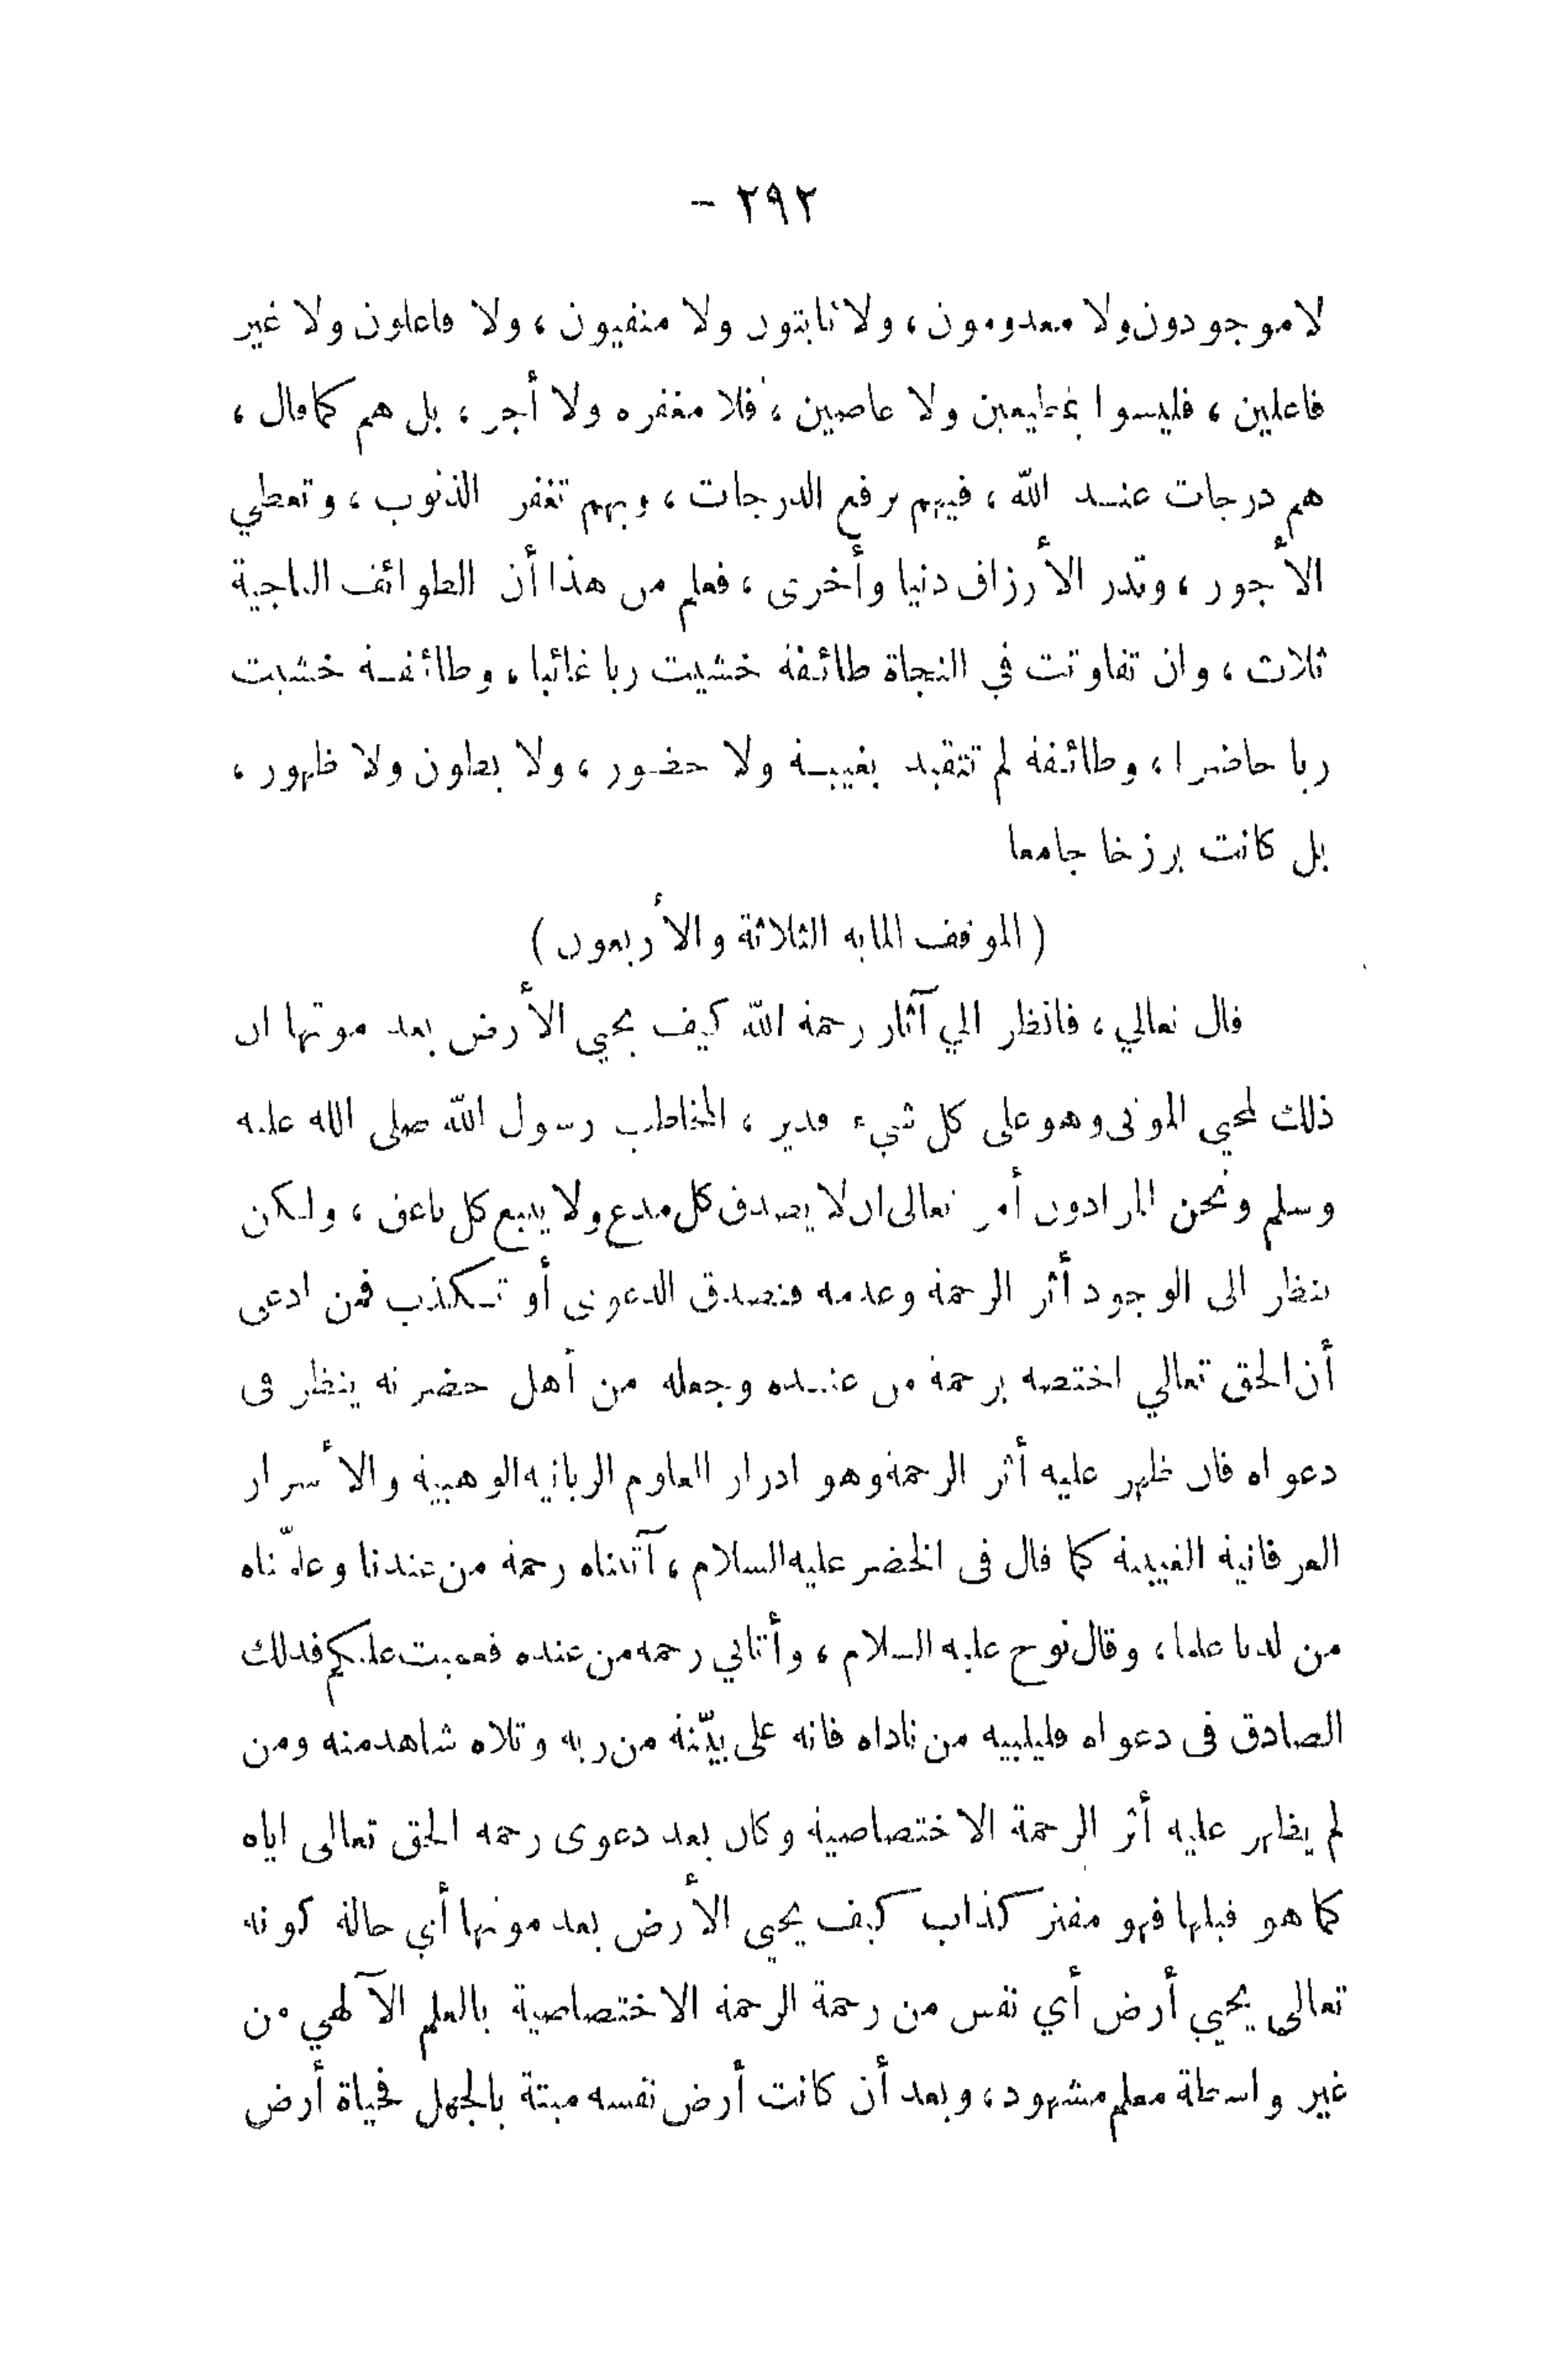 ٢٩٢ –
لا موجودون ولا معدومون ، ولا ثابتون ولا منفيون ، ولا فاعلون ولا غير
فاعلين ، فليسوا بمطيعين ولا عاصين ، فلا مغفره ولا أجر ، بل هم كما قال ،
هم درجات عنـد الله ، فبهم ترفع الدرجات ، وبهم تغفر الذنوب ، وتعطي
الأجور ، وتدر الأرزاق دنيا وأخرى ، فعلم من هذا أن الطوائف الناجية
ثلاث ، وان تفاوتت في النجاة طائفة خشيت ربا غائبا ، وطائفـة خشيت
ربا حاضرا ، وطائفة لم تتقيد بغيبـة ولا حضور ، ولا بطون ولا ظهور ،
بل كانت برزخا جامعا
( الموقف المايه الثلاثة والأربعون )
قال تعالي ، فانظر الي آثار رحمة الله كيف يحيي الأرض بعد موتها ان
ذلك لمحيي الموتى وهو على كل شيء قدير ، المخاطب رسول الله صلى الله عليه
وسلم ونحن المرادون أمر تعالى ان لا يصدق كل مدع ولا يتبع كل ناعق ، ولكن
ينظر الى الوجود أثر الرحمة وعدمه فتصدق الدعوى أو تـكذب فمن ادعى
أن الحق تعالي اختصه برحمة من عنـده وجعله من أهل حضرته ينظر فى
دعواه فان ظهر عليه أثر الرحمة وهو ادرار العلوم الربانيه الوهبية والأسرار
العرفانية الغيبية كما قال فى الخضر عليه السلام ، آتيناه رحمة من عندنا وعلّمناه
من لدنا علما ، وقال نوح عليه السلام ، وأتاني رحمه من عنده فعميت عليكم فذلك
الصادق فى دعواه فليلبيه من ناداه فانه على بيّنة من ربه وتلاه شاهد منه ومن
لم يظهر عليه أثر الرحمة الاختصاصية وكان بعد دعوى رحمه الحق تعالى اياه
كما هو قبلها فهو مفتر كذاب كيف يحيى الأرض بعد موتها أي حالة كونه
تعالى يحيي أرض أي نفس من رحمة الرحمة الاختصاصية بالعلم الآلهي من
غير واسطة معلم مشهود ، وبعد أن كانت أرض نفسه ميتة بالجهل فحياة أرض